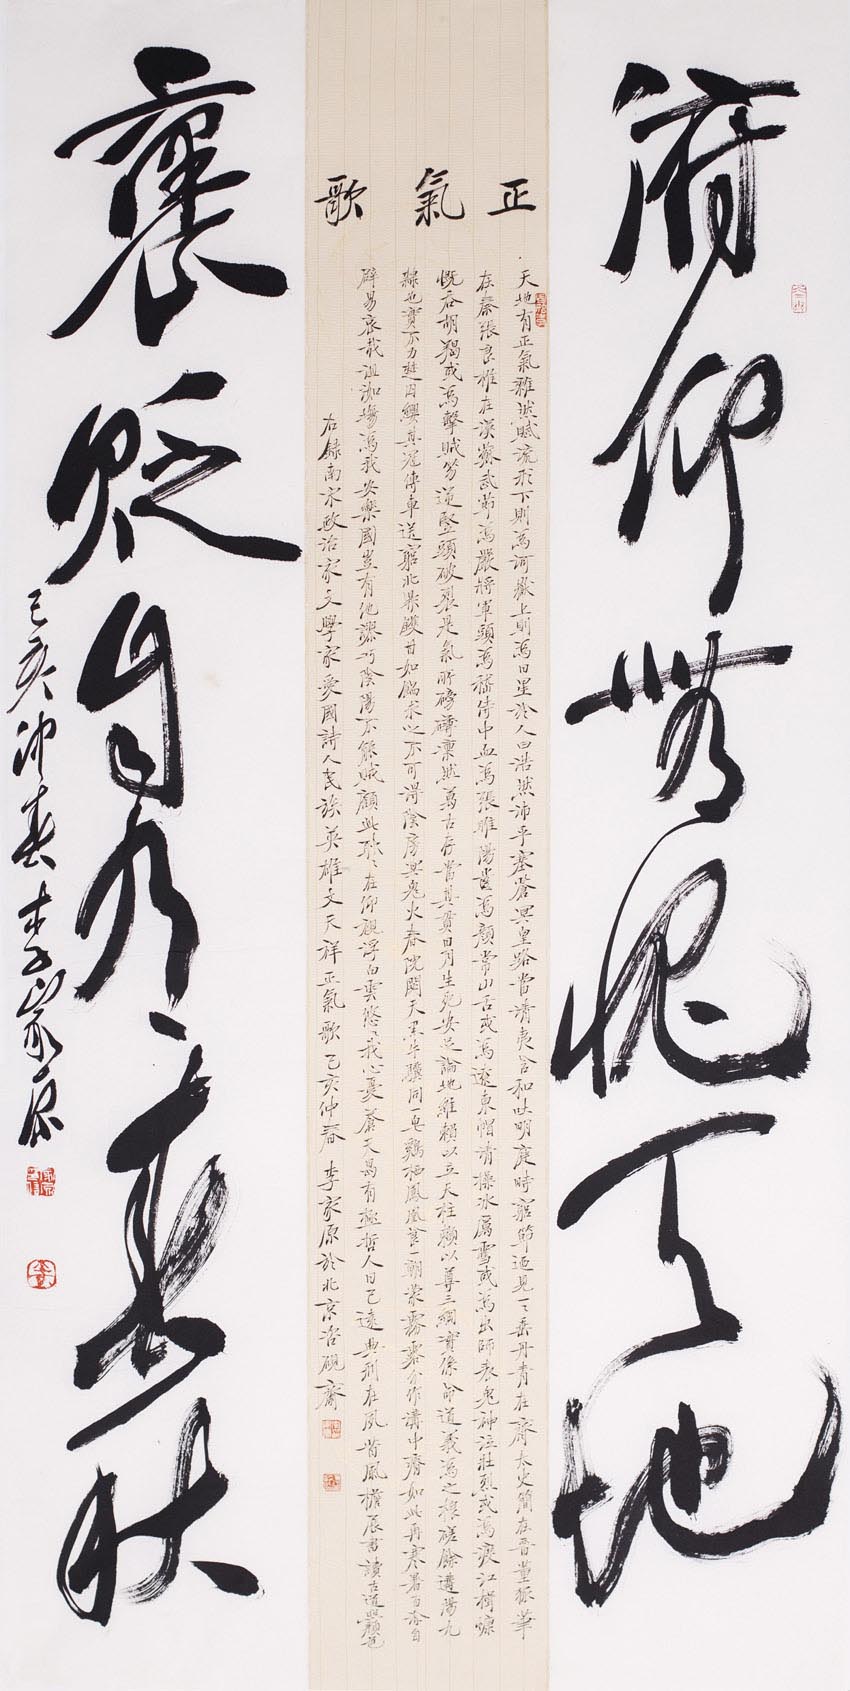 俯仰無愧天地
正氣歌
天地有正氣雜然賦流形下則為河嶽上則為日星於人曰浩然沛乎塞蒼冥皇路當清夷含和吐明庭時窮節迺見一一垂丹青在齊太史簡在晉董狐筆
在秦張良椎在漢蘇武節為嚴將軍頭為嵇侍中血為張睢陽齒為顏常山舌或為遼東帽清操冰厲雪或為出師表鬼神泣壯烈或為渡江楫慷
慨吞胡羯或為擊賊笏逆豎頭破裂是氣所磅礴凜然萬古存當其貫日月生死安足論地維賴以立天柱賴以尊三綱實係命道義為之根嗟餘遘陽九
隸也實不力楚囚纓其冠傳車送窮北鼎鑊甘如飴求之不可得陰房冥鬼火春院閟天黑牛驥同一皂鷄栖鳳凰食一朝蒙霧露分作溝中瘠如此再寒暑百沴自
辟易哀哉沮洳場為我安樂國豈有他謬巧陰陽不能賊顧此耿耿在仰視浮白雲悠悠我心憂蒼天曷有極哲人日已遠典刑在夙昔風檐展書讀古道照顏色
右錄南宋政治家文學家愛國詩人民族英雄文天祥正氣歌己亥仲春李家原於北京洛硯齋
褒貶自有春秋
己亥仲春李家原